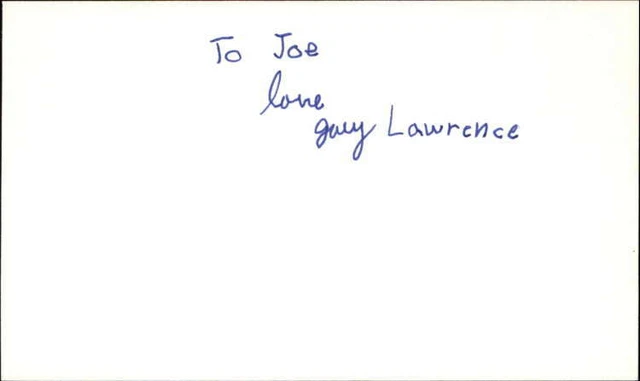 To Joe
love
Gary Lawrence